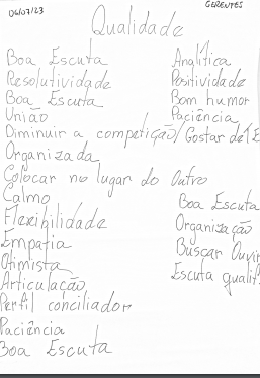 06/07/23
GERENTES
Qualidade
Boa Escuta
Resolutividade
Boa Escuta
União
Diminuir a competição/Gostar de
Organizada
Colocar no lugar do Outro
Calmo
Flexibilidade
Empatia
Otimista
Articulação
Perfil conciliador
Paciência
Boa Escuta
Analítica
Positividade
Bom humor
Paciência
Boa Escuta
Organização
Buscar Ouvir
Escuta qualif